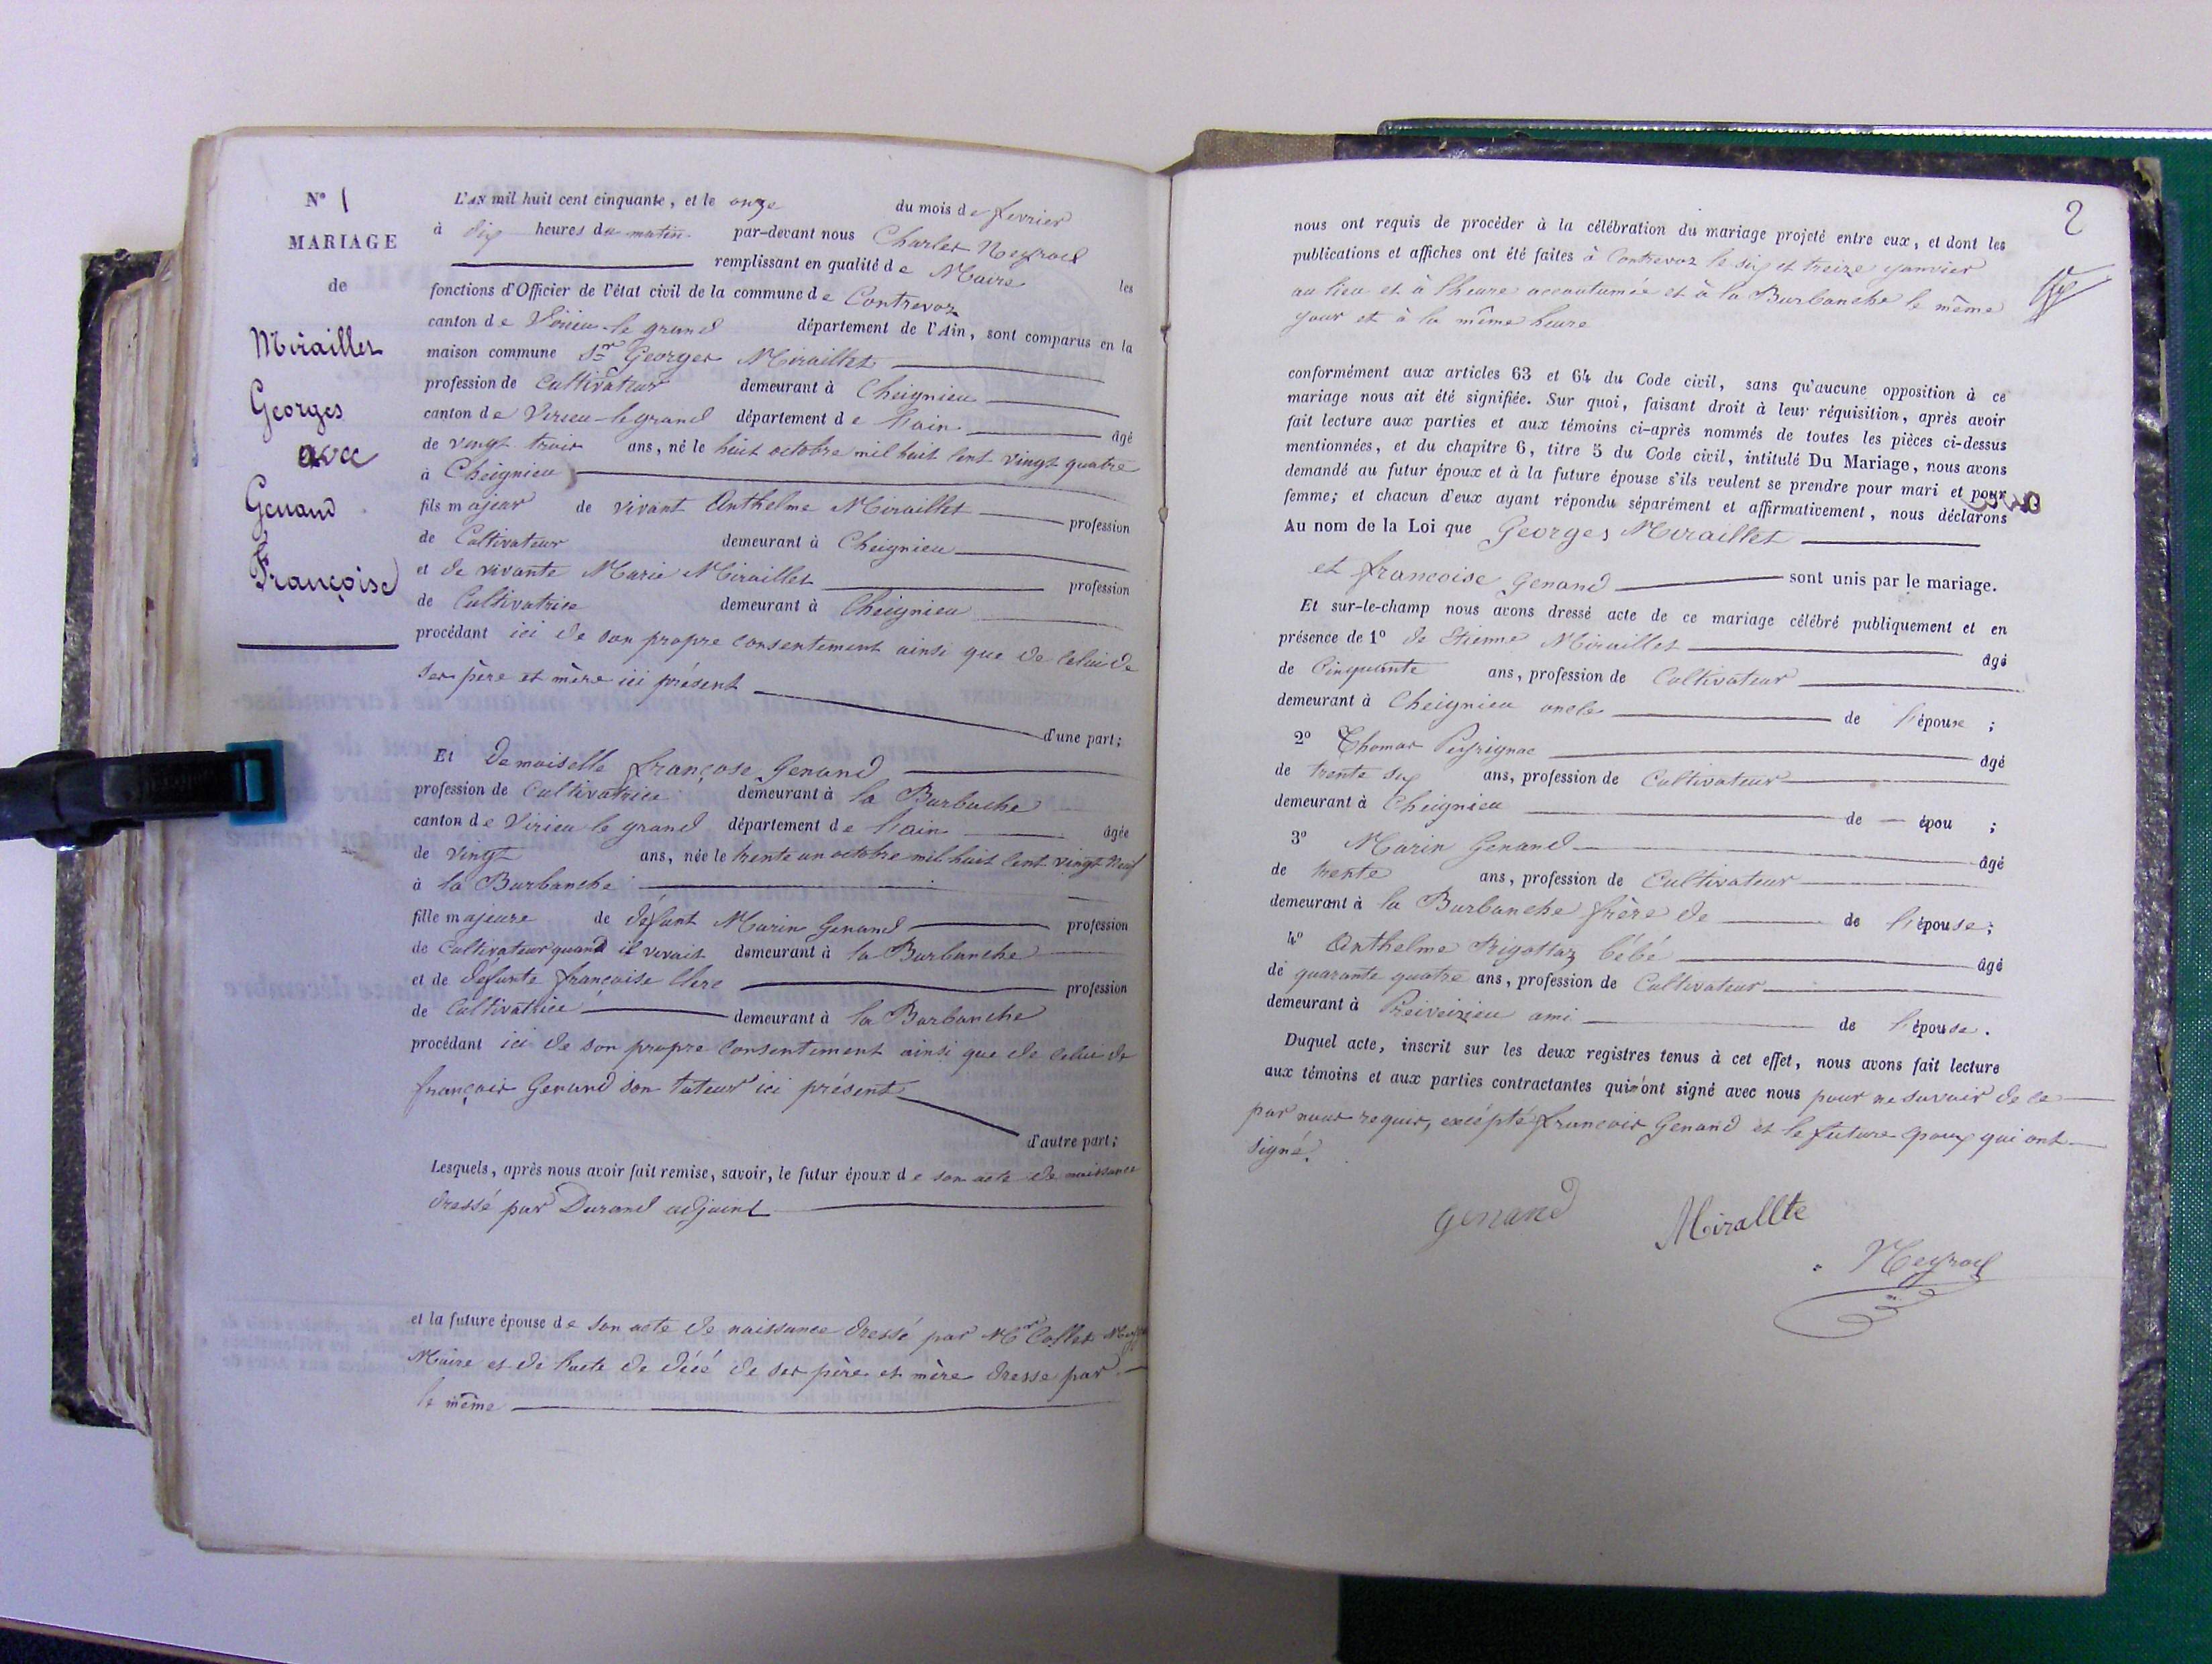 N° 1
MARIAGE
de
Miraillet
Georges
avec
Genand
Françoise
L'AN mil huit cent cinquante, et le onze du mois de fevrier
à dix heures du matin par-devant nous Charles Neyroud
remplissant en qualité de Maire les
fonctions d'Officier de l'état civil de la commune de Contrevoz
canton de Virieu-le grand département de l'Ain, sont comparus en la
maison commune Sr Georges Miraillet
profession de Cultivateur demeurant à Cheignieu
canton de Virieu-le grand département de l'ain âgé
de vingt trois ans, né le huit octobre mil huit cent vingt quatre
à Cheignieu
fils majeur de vivant Anthelme Miraillet profession
de Cultivateur demeurant à Cheignieu
et de vivante Marie Miraillet profession
de Cultivatrice demeurant à Cheignieu
procédant ici de son propre consentement ainsi que de celui de
ses père et mère ici présent
d'une part;
Et Demoiselle françose Genand
profession de Cultivatrice demeurant à la Burbache
canton de Virieu le grand département de l'ain âgée
de vingt ans, née le trente un octobre mil huit cent vingt neuf
à la Burbanche
fille majeure de défunt Marin Genand profession
de Cultivateur quand il vivait demeurant à la Burbanche
et de défunte francoise Clerc profession
de Cultivatrice demeurant à la Burbanche
procédant ici de son propre consentement ainsi que de celui de
françois Genand son tuteur ici présent
d'autre part;
Lesquels, après nous avoir fait remise, savoir, le futur époux de son acte de naissance
dressé par Durand adjoint
et la future épouse de son acte de naissance dressé par Mr Collet
Maire et de l'acte de décé de ses père et mère dresse par
le même
2
nous ont requis de procéder à la célébration du mariage projeté entre eux, et dont les
publications et affiches ont été faites à Contrevoz le six et treize janvier
au lieu et à l'heure accoutumée et à la Burbanche le même
jour et à la même heure
conformément aux articles 63 et 64 du Code civil, sans qu'aucune opposition à ce
mariage nous ait été signifiée. Sur quoi, faisant droit à leur réquisition, après avoir
fait lecture aux parties et aux témoins ci-après nommés de toutes les pièces ci-dessus
mentionnées, et du chapitre 6, titre 5 du Code civil, intitulé Du Mariage, nous avons
demandé au futur époux et à la future épouse s'ils veulent se prendre pour mari et pour
femme; et chacun d'eux ayant répondu séparément et affirmativement, nous déclarons
Au nom de la Loi que Georges Miraillet
et francoise Genand sont unis par le mariage.
Et sur-le-champ nous avons dressé acte de ce mariage célébré publiquement et en
présence de 1° de Etienne Miraillet âgé
de Cinquante ans, profession de Cultivateur
demeurant à Cheignieu oncle de l'épouse ;
2° Thomas Peysignac âgé
de trente six ans, profession de Cultivateur
demeurant à Cheignieu de — épou ;
3° Marin Genand âgé
de trente ans, profession de Cultivateur
demeurant à la Burbanche frère de de l'épouse;
4° Anthelme Rigottaz bébé âgé
de quarante quatre ans, profession de Cultivateur
demeurant à ami de l'épouse.
Duquel acte, inscrit sur les deux registres tenus à cet effet, nous avons fait lecture
aux témoins et aux parties contractantes qui n'ont signé avec nous pour ne savoir de ce
par nous requis, excépté francois Genand et le future epoux qui ont
signé.
Genand
Mirallte
Neyroud